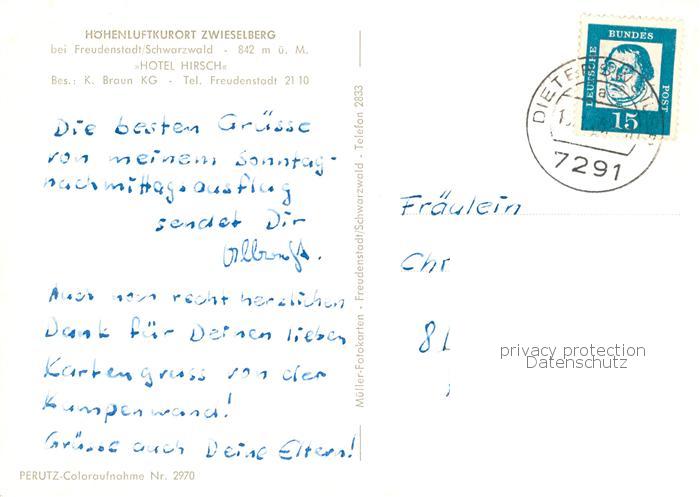 HÖHENLUFTKURORT ZWIESELBERG
bei Freudenstadt/Schwarzwald - 842 m ü. M.
»HOTEL HIRSCH«
Bes.: K. Braun KG - Tel. Freudenstadt 21 10
Die besten Grüsse
von meinem Sonntag-
nachmittagsausflug
sendet Dir
Auch noch recht herzlichen
Dank für Deinen lieben
Kartengruss von der
Kampenwand!
Grüsse auch Deine Eltern!
PERUTZ-Coloraufnahme Nr. 2970
Müller-Fotokarten - Freudenstadt/Schwarzwald - Telefon 2833
DEUTSCHE BUNDES POST
15
7291
Fräulein
Chr
8
privacy protection
Datenschutz